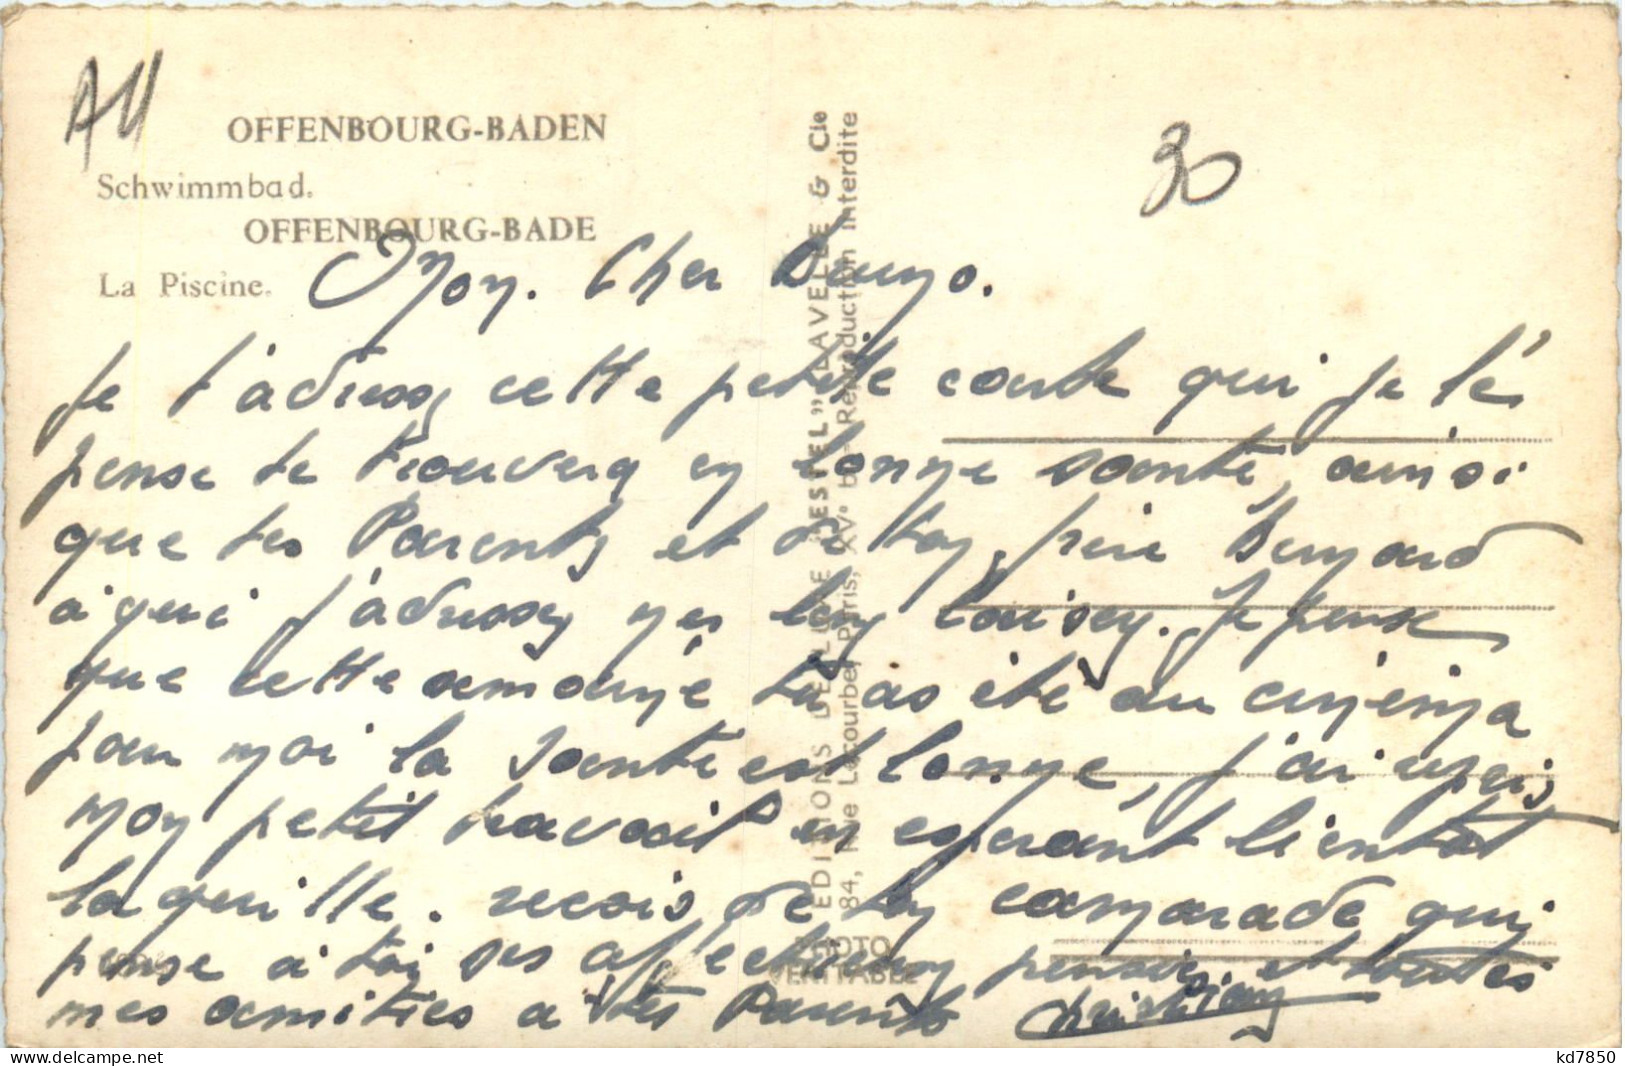 AU
30
OFFENBOURG-BADEN
Schwimmbad.
OFFENBOURG-BADE
La Piscine.
Mon. Cher
Je t'adresse cette petite carte qui je l'és
pense te trouverq en bonne santé, ainsi
que tes Parents et de ton frère Bernard
a qui j'adresse mes bon
Je pense
que cette année tu as été au cinéma
pour moi la santé est bonne, j'ai repris
mon petit travail en espérant bientôt
la quille. recois de ton camarade qui
pense a toi ses affectueux pensées. et toutes
mes amitiés a tes Parents Christian
EDITIONS DE L'EST "ESTEL" LAVELLE & Cie
84, Rue Lecourbe, Paris, XVe b - Reproduction interdite
PHOTO
VERITABLE
kd7850